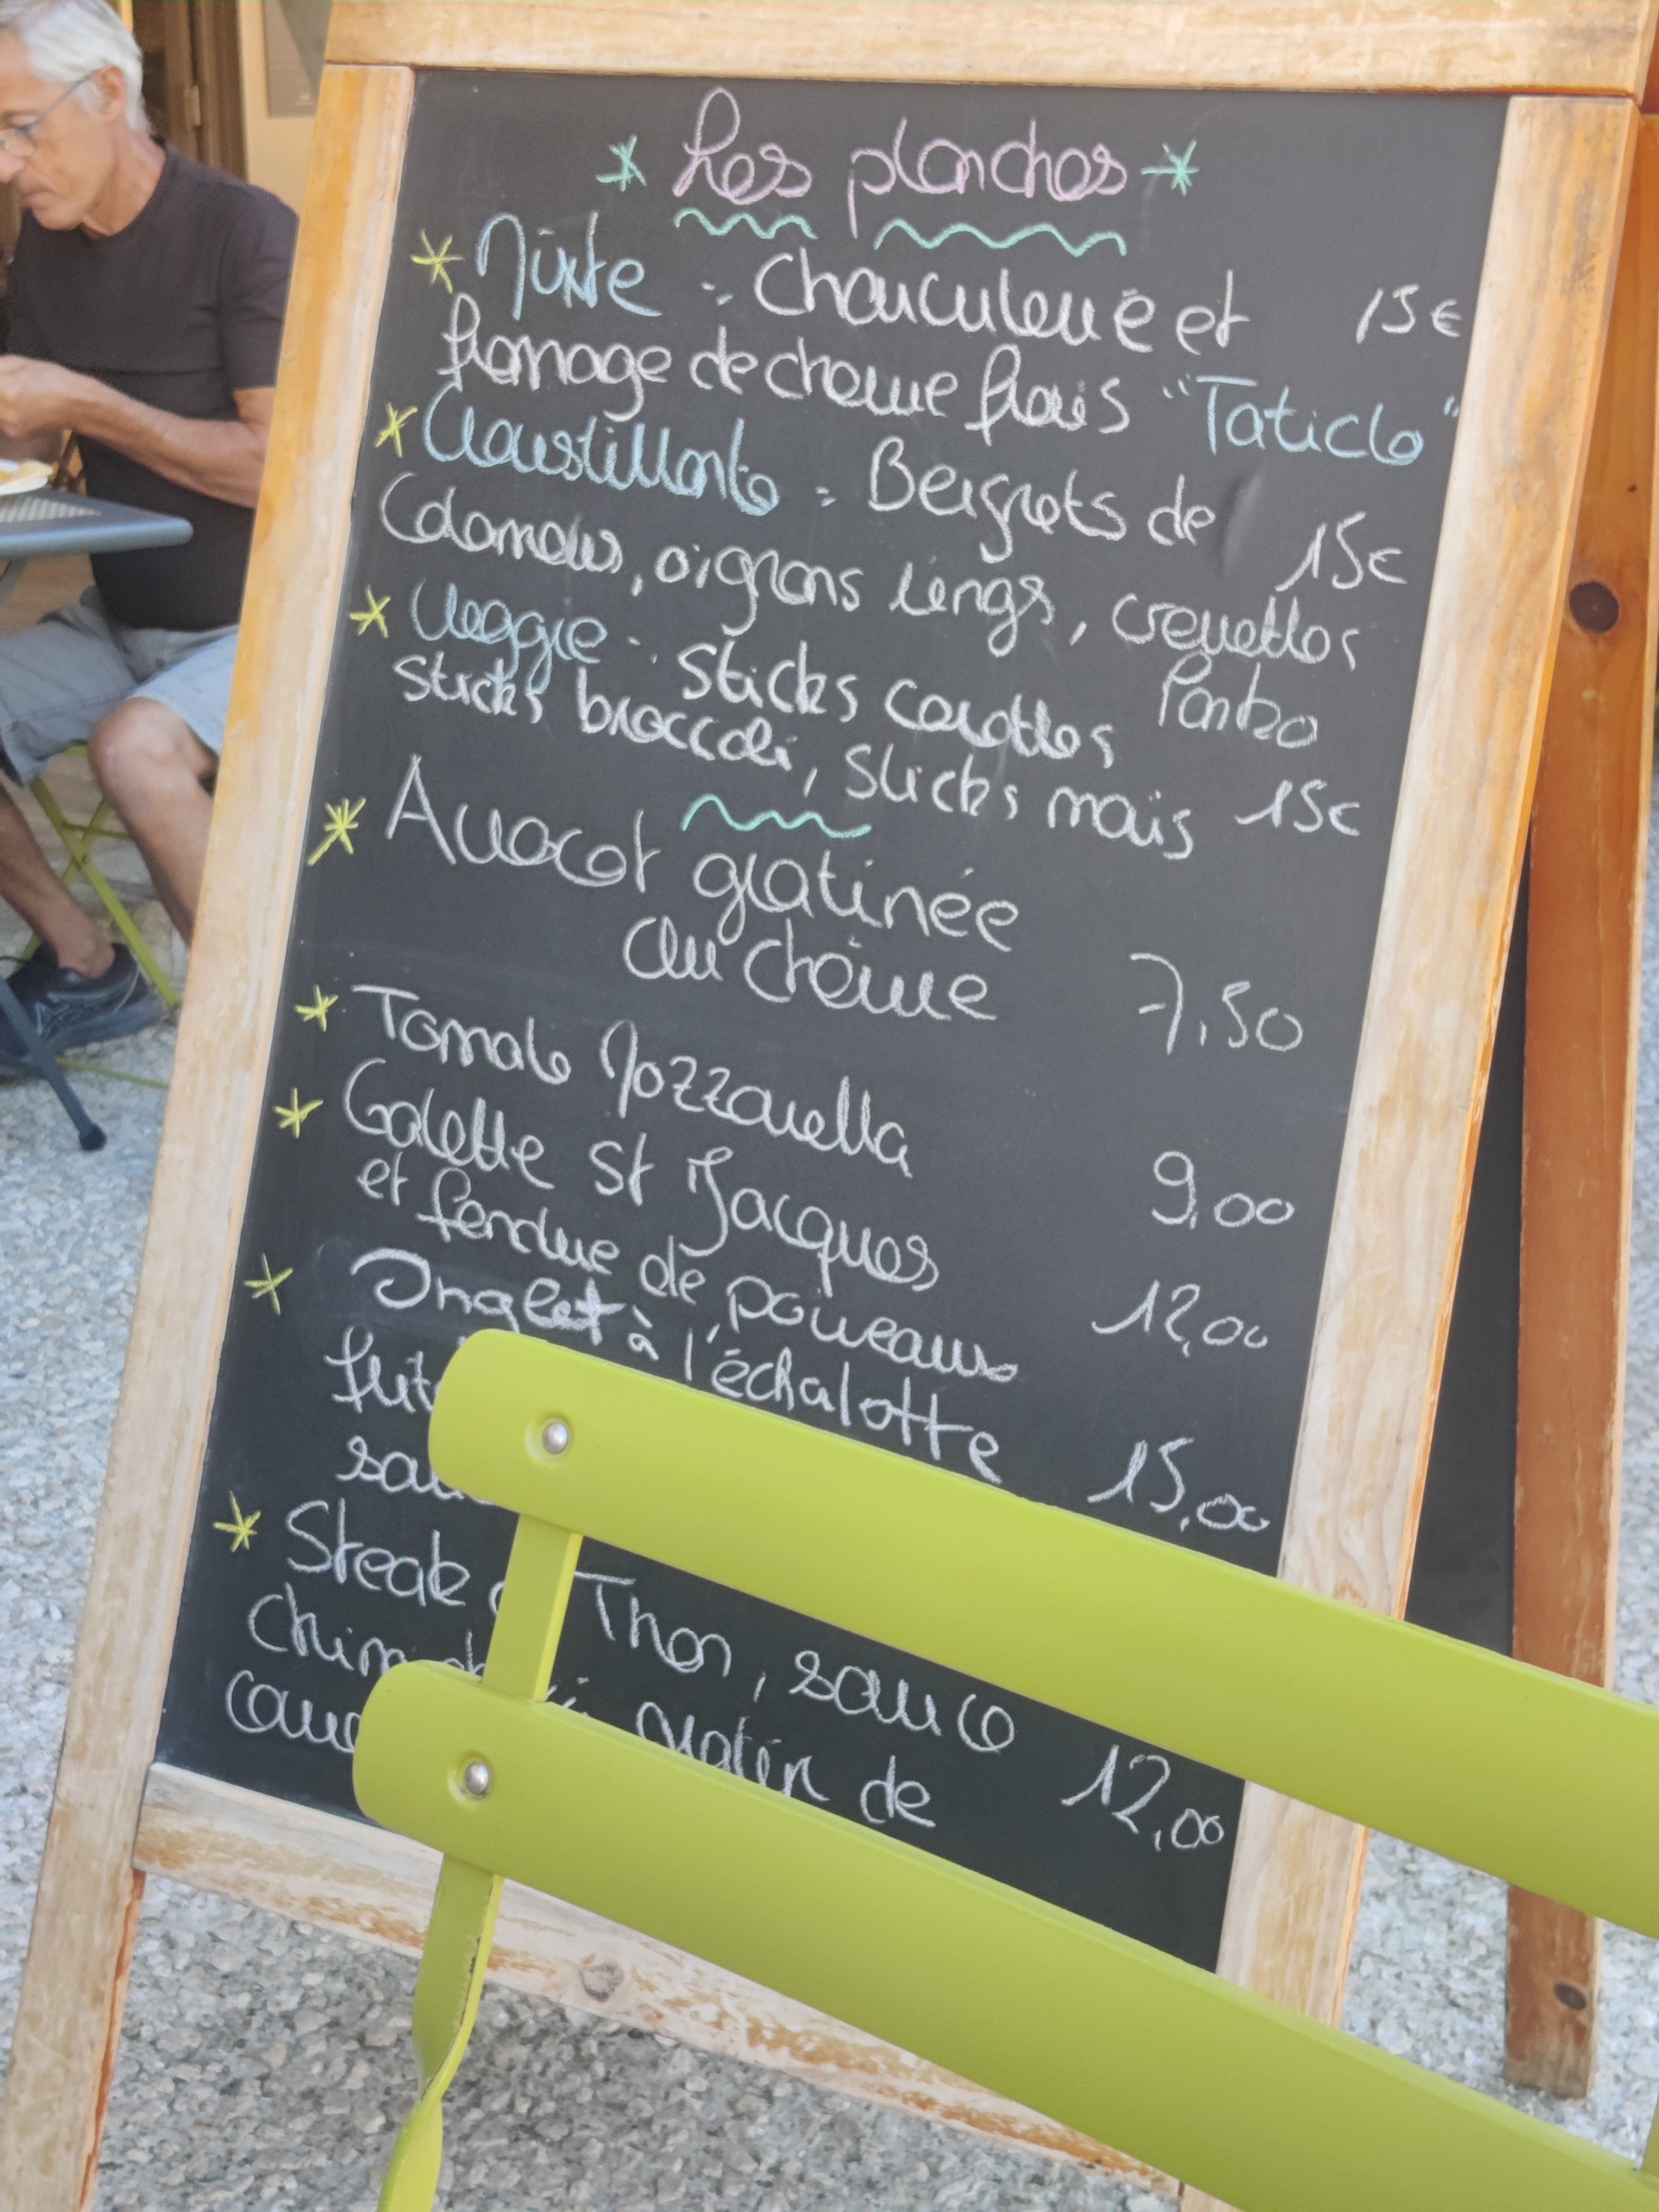 Les planches
Mixte : Charcuterie et 15€
fromage de chèvre frais "Taticlo"
Croustillante : Beignets de 15€
Calamars, oignons rings, crevettes
Panko
Veggie : Sticks carottes
Sticks broccoli, Sticks maïs 15€
Avocat gratinée
au chèvre 7,50
Tomate Mozzarella 9,00
Galette St Jacques
et fondue de poireaux 12,00
Onglet à l'échalotte 15,00
Steak Thon, sauce
de 12,00